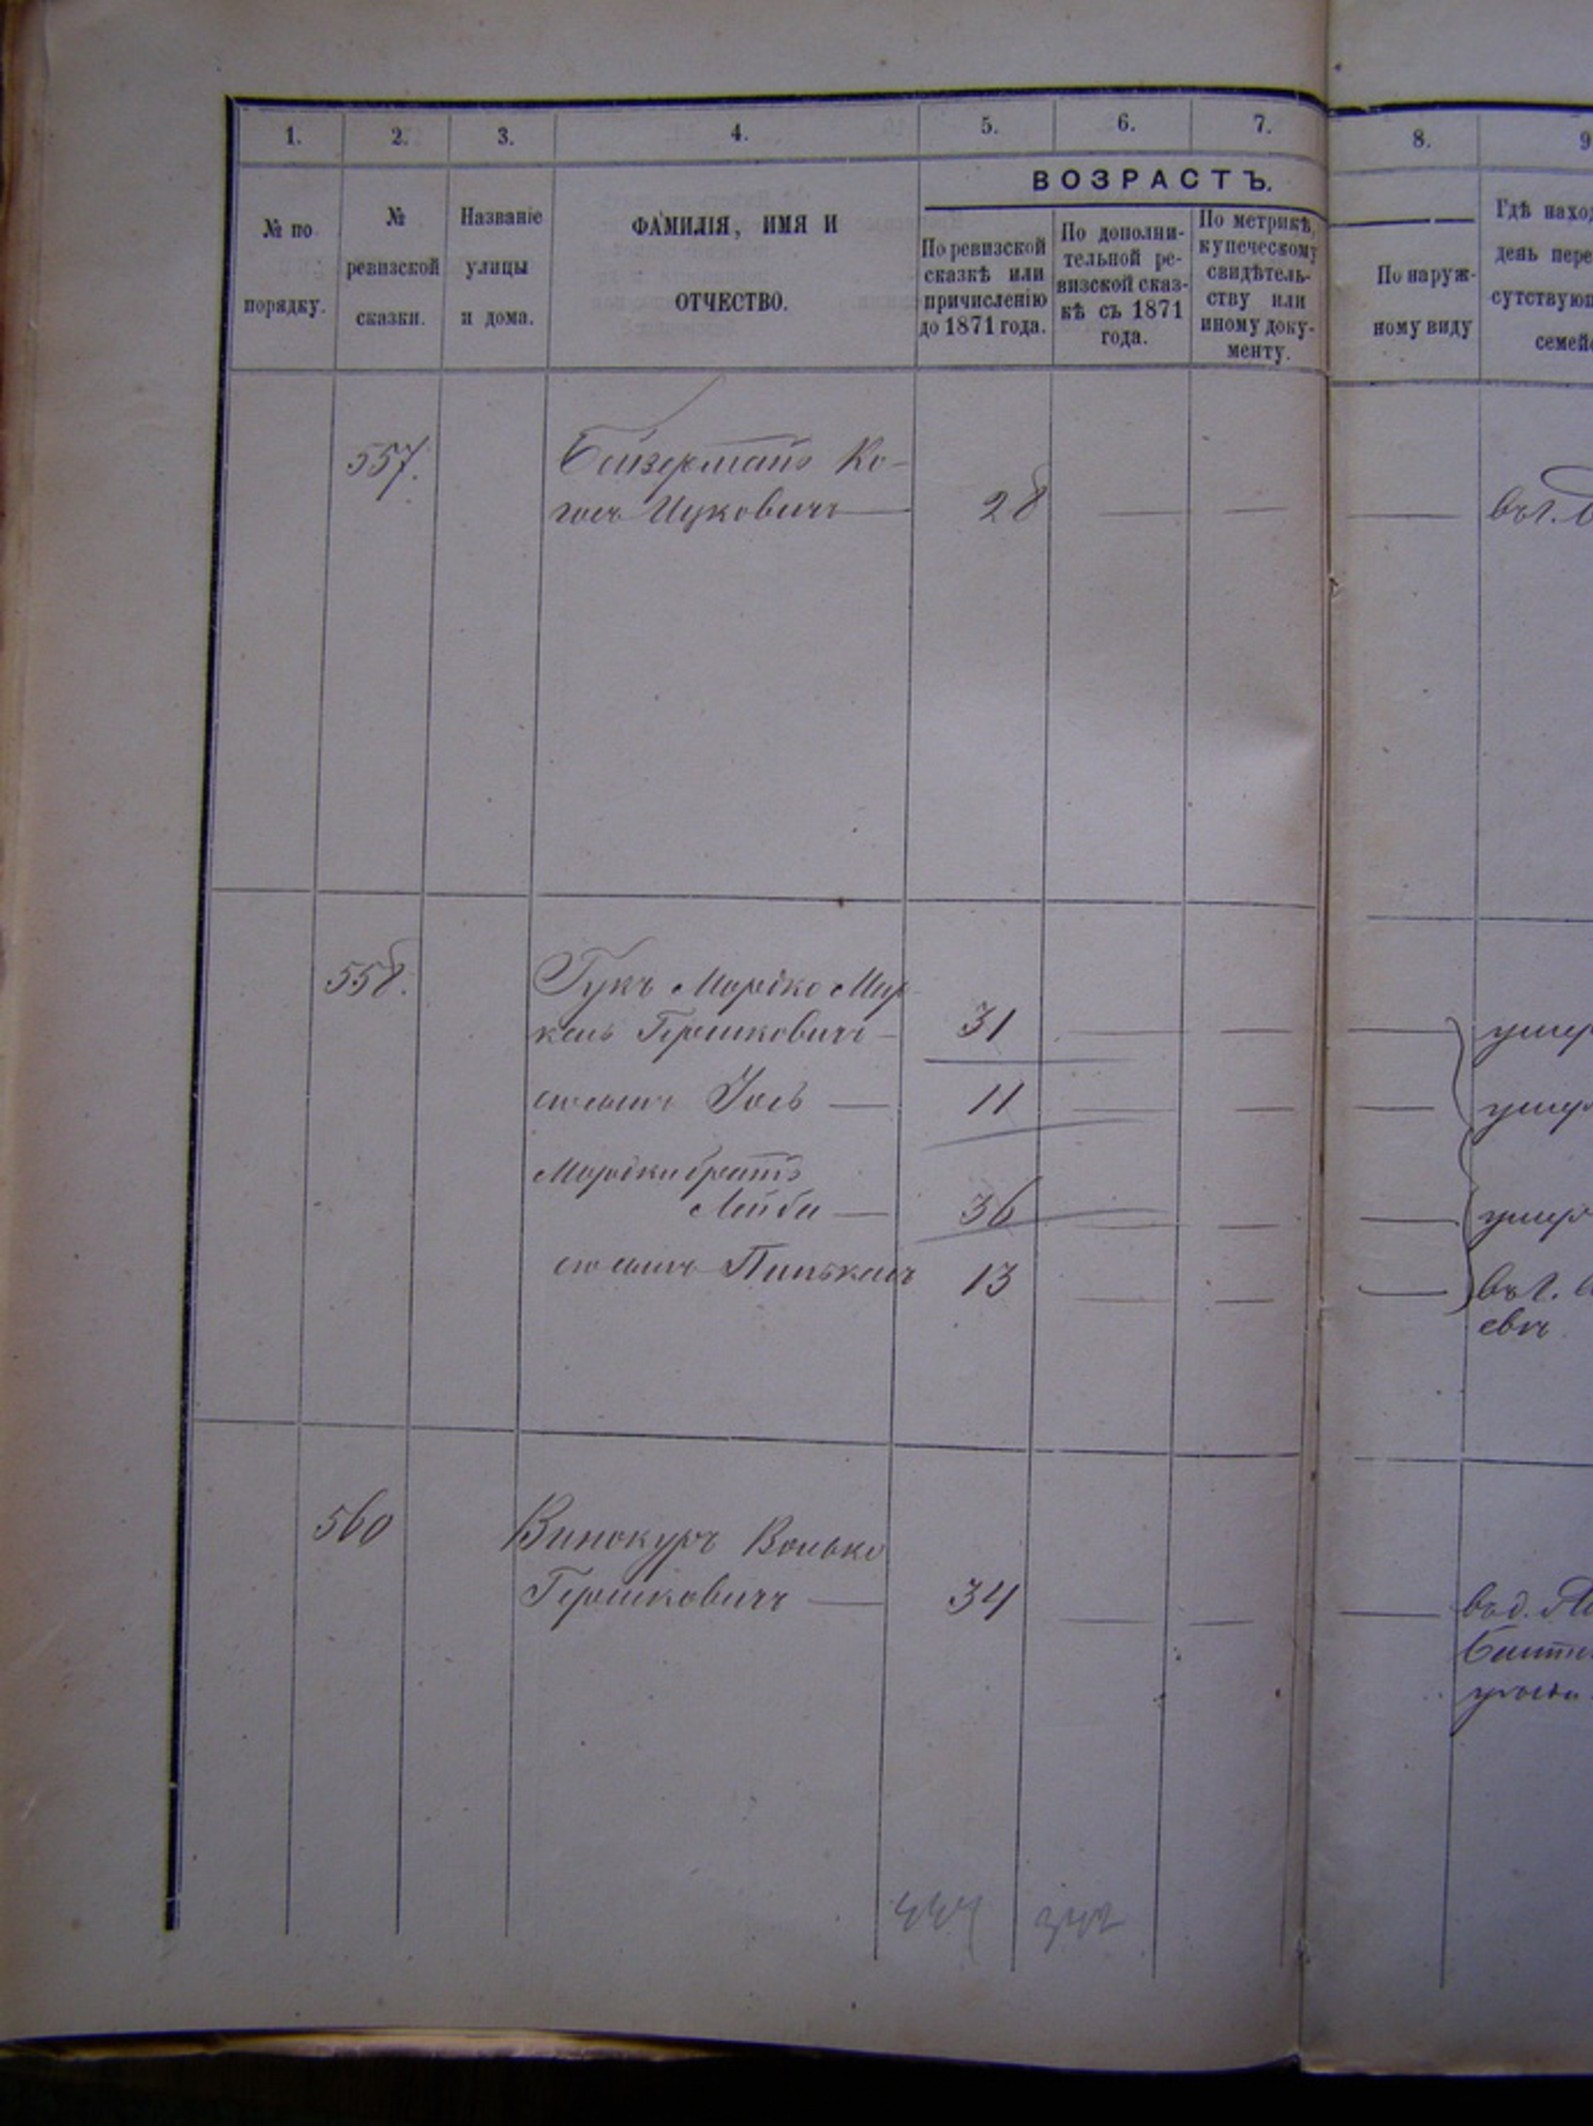 1. 2. 3. 4. 5. 6. 7. 8. 9
№ по порядку.
№ ревизской сказки.
Названіе улицы и дома.
ФАМИЛІЯ, ИМЯ И
ОТЧЕСТВО.
ВОЗРАСТЪ.
По ревизской
сказкѣ или
причисленію
до 1871 года.
По дополни-
тельной ре-
визской сказ-
кѣ съ 1871
года.
По метрикѣ,
купеческому
свидѣтель-
ству или
иному доку-
менту.
По наруж-
ному виду
Гдѣ наход
день пере
сутствую
семей
557.
Ко-
Ицковичъ — 28 — — — въ г.
558.
Гукъ Мордко Мар-
кель Гершковичъ — 31 — — — умер
его сынъ — 11 — — — умер
Мордки братъ
Лейба — 36 — — — умер
его сынъ 13 — — — въ г.
евъ
560 Винокуръ Волько
Гершковичъ — 34 — — — въ д.